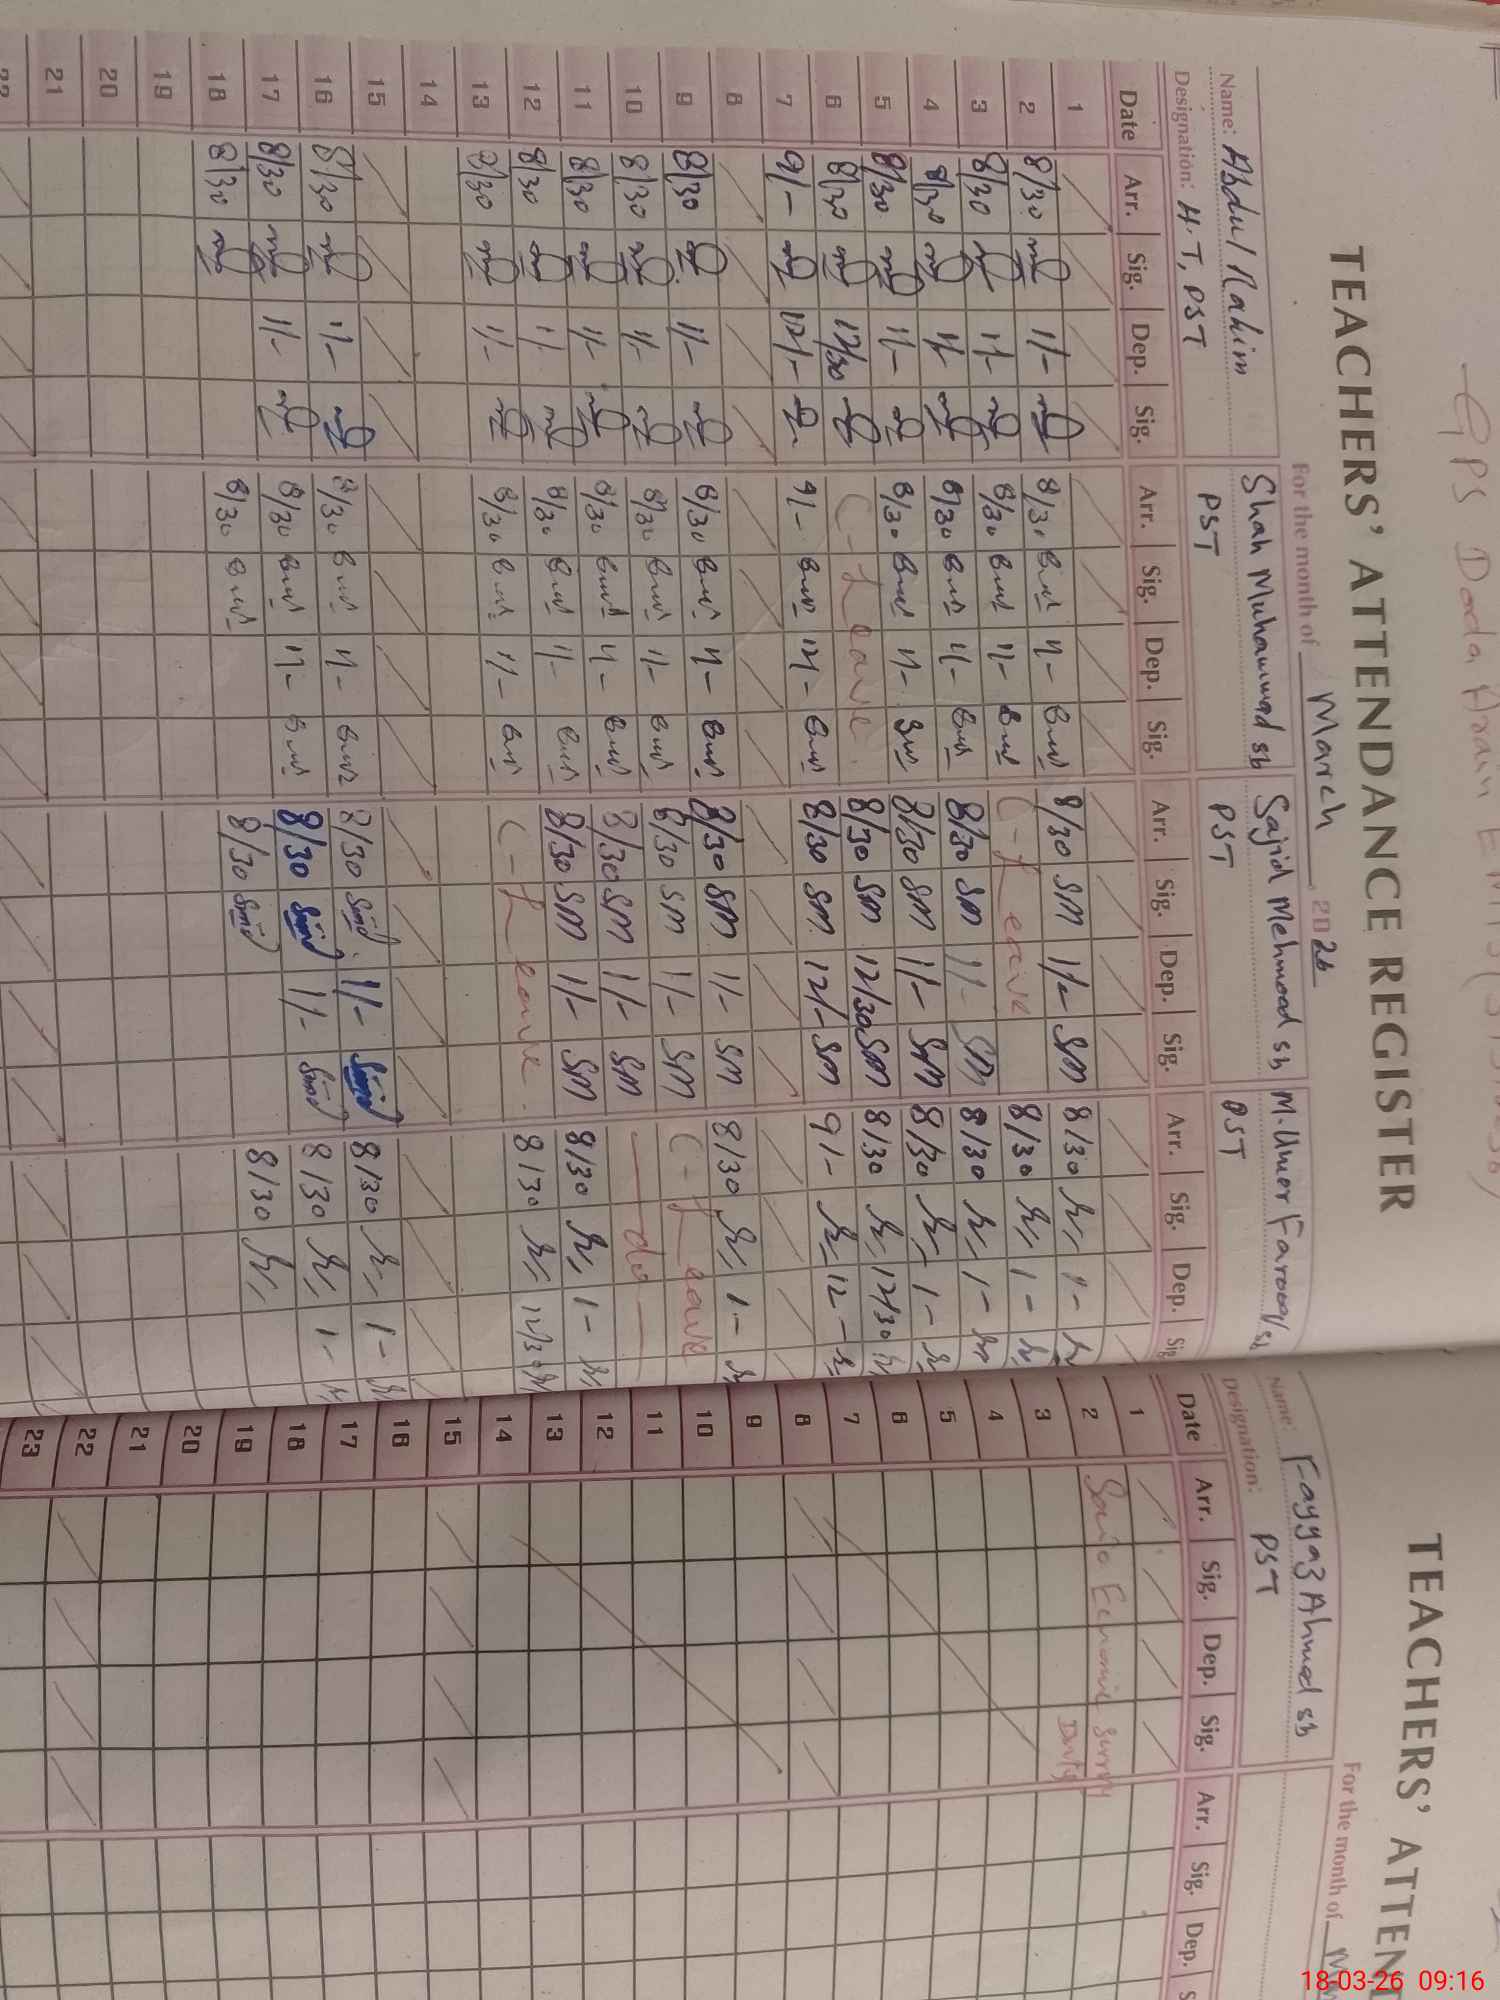 GPS Doda Arain EMIS
TEACHERS' ATTENDANCE REGISTER
For the month of March 2026
Name: Abdul Rahim Shah Muhammad sb Sajid Mehmood sb M. Umer Farooq sb
Designation: H.T, PST PST PST PST
Date Arr. Sig. Dep. Sig. Arr. Sig. Dep. Sig. Arr. Sig. Dep. Sig. Arr. Sig. Dep. Sig
1
2 8/30 1/- 8/30 1/- 8/30 SM 1/- SM 8/30 1-
3 8/30 1/- 8/30 1/- C-Leave 8/30 1-
4 8/30 1/- 8/30 1/- 8/30 SM 1/- SM 8/30 1-
5 8/30 1/- 8/30 1/- 8/30 SM 1/- SM 8/30 1-
6 8/30 12/30 C-Leave 8/30 SM 12/30 SM 8/30 12/30
7 9/- 12/- 9/- 12/- 8/30 SM 12/- SM 9/- 12-
8
9 8/30 1/- 8/30 1/- 8/30 SM 1/- SM 8/30 1-
10 8/30 1/- 8/30 1/- 8/30 SM 1/- SM C-Leave
11 8/30 1/- 8/30 1/- 8/30 SM 1/- SM —do—
12 8/30 1/- 8/30 1/- 8/30 SM 1/- SM 8/30 1-
13 8/30 1/- 8/30 1/- C-Leave 8/30 12/30
14
15
16 8/30 1/- 8/30 1/- 8/30 1/- 8/30 1-
17 8/30 1/- 8/30 1/- 8/30 1/- 8/30 1-
18 8/30 8/30 8/30 8/30
19
20
21
22
TEACHERS' ATTEN
For the month of
Name: Fayyaz Ahmed sb
Designation: PST
Date Arr. Sig. Dep. Sig. Arr. Sig. Dep. S
1
2 Socio Economic Survey
3 Duty
4
5
6
7
8
9
10
11
12
13
14
15
16
17
18
19
20
21
22
23
18-03-26 09:16